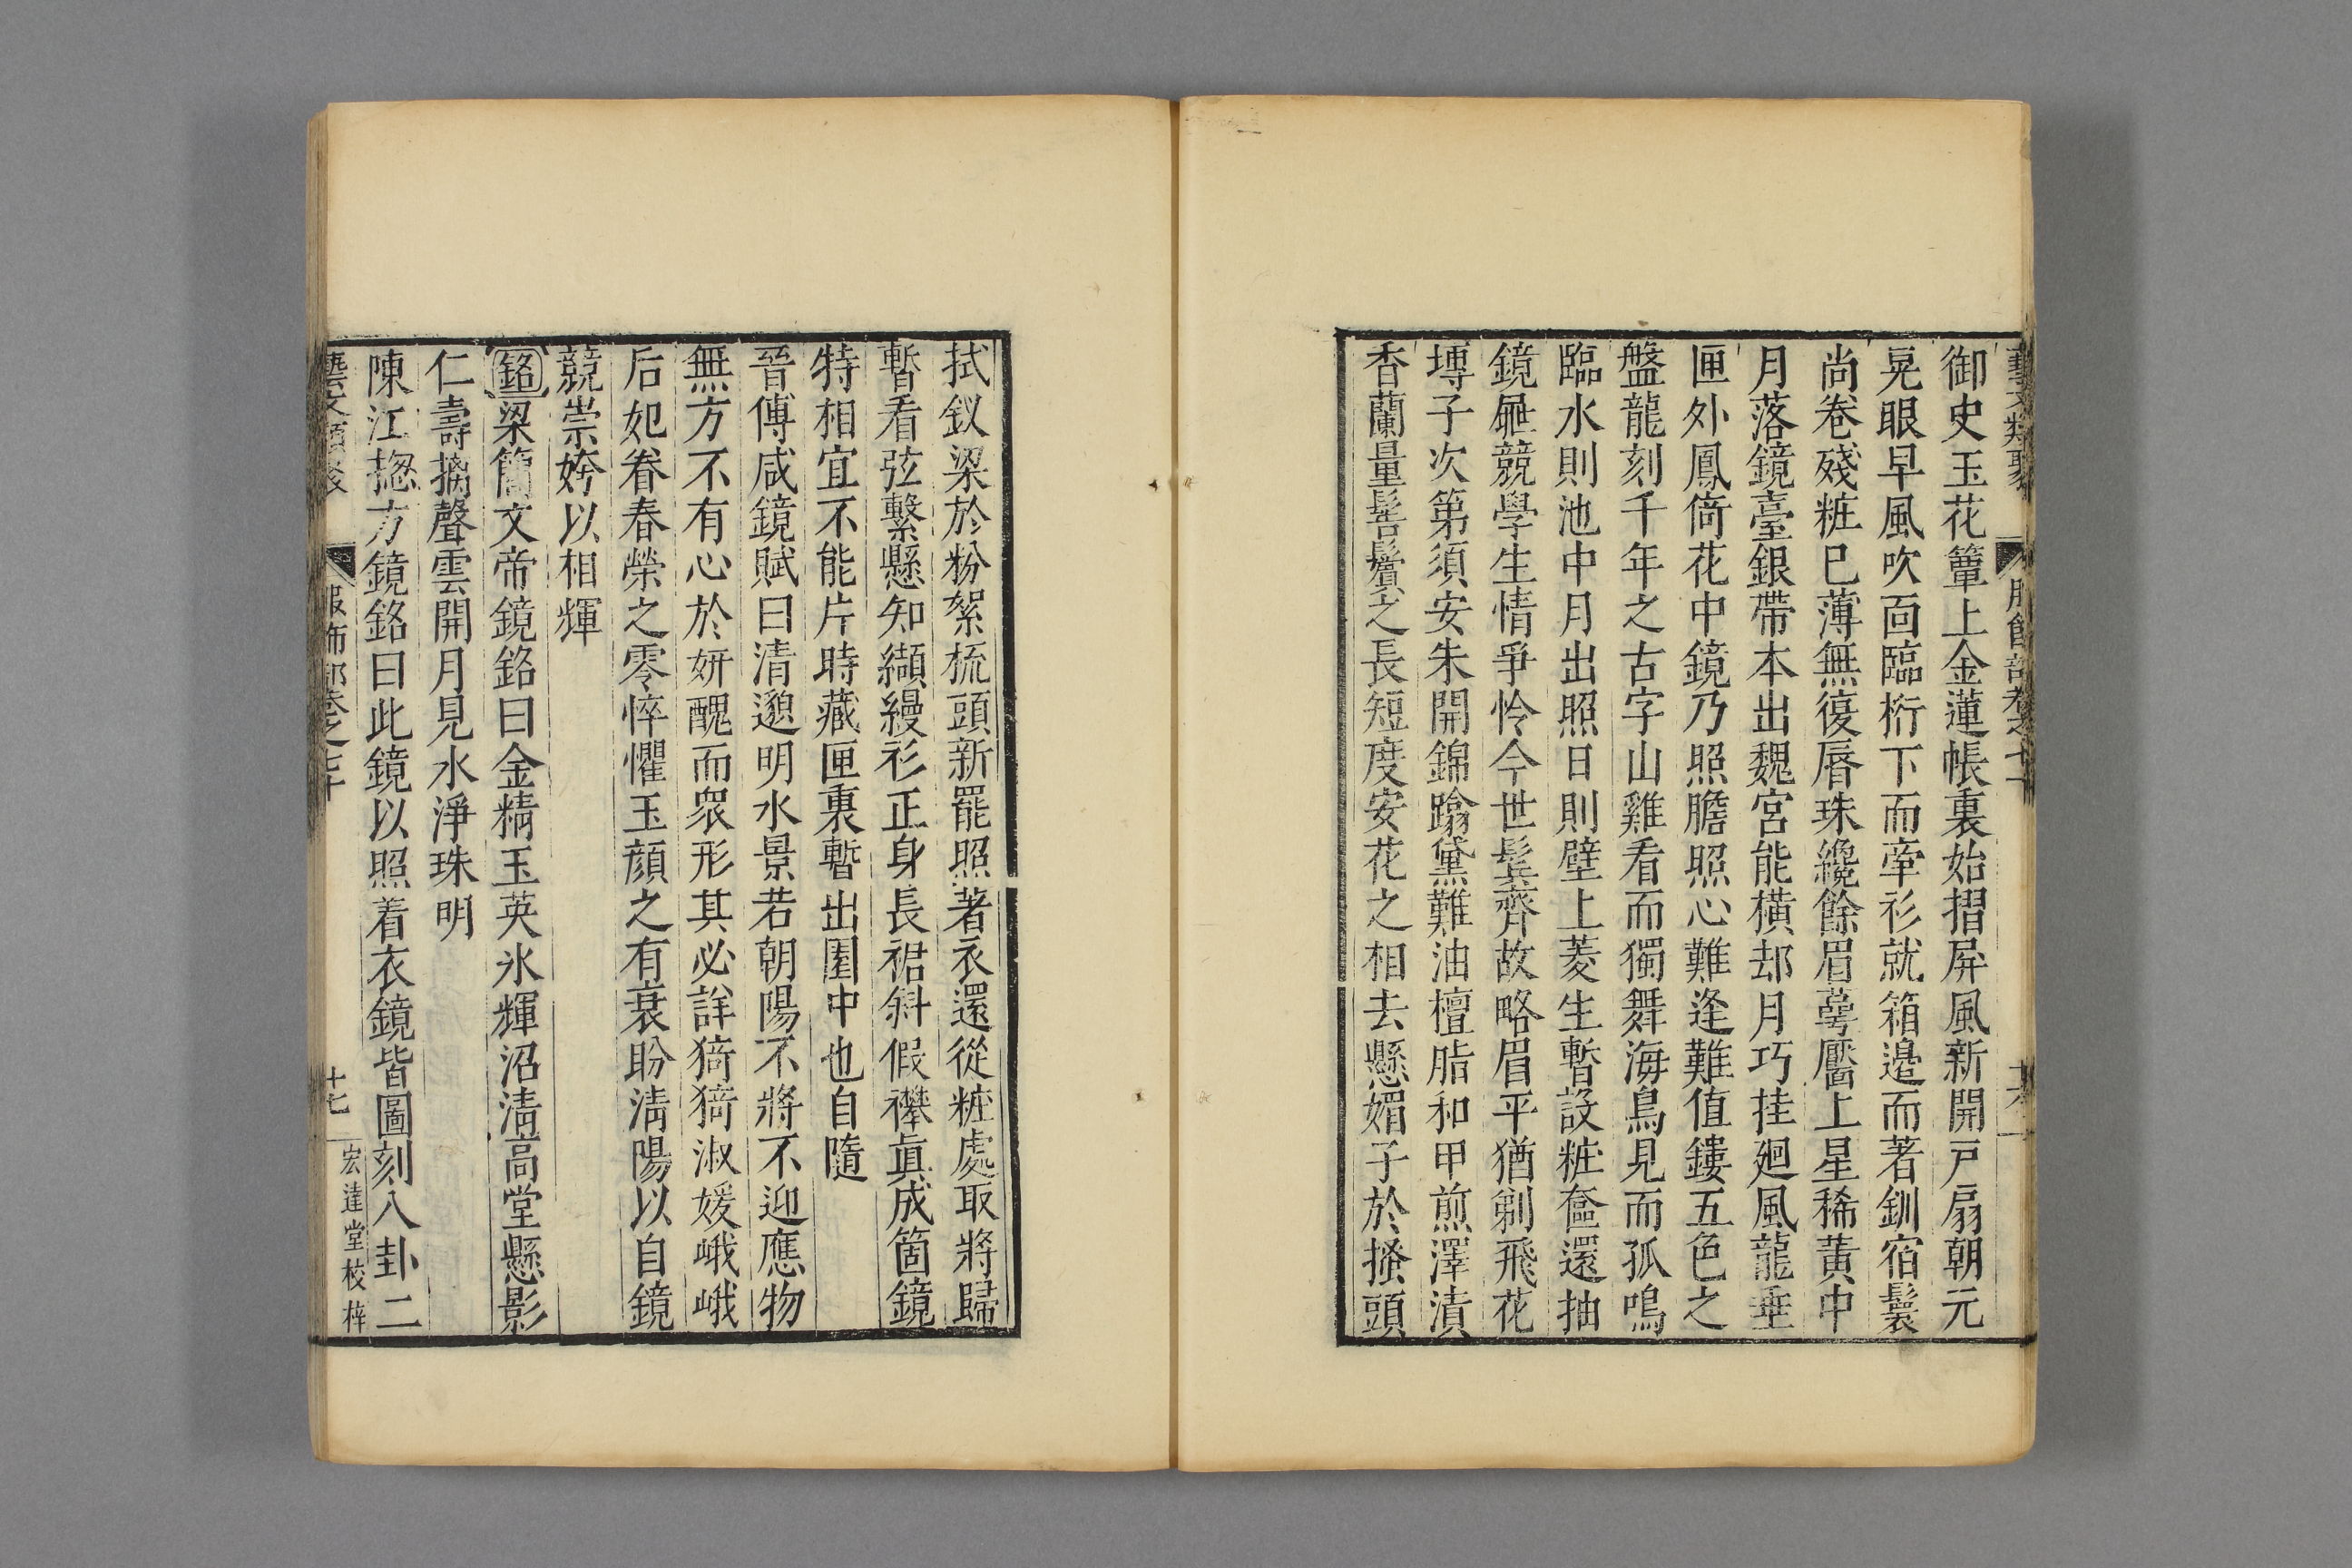 藝文類聚 服飾部卷之七十 十六
御史玉花簟上金蓮帳裏始摺屏風新開戸扇朝元
晃眼早風吹面臨桁下而牽衫就箱邊而著釧宿鬟
尚卷殘粧已薄無復唇珠纔餘眉萼靨上星稀黃中
月落鏡臺銀帶本出魏宮能橫却月巧挂廻風龍垂
匣外鳳倚花中鏡乃照膽照心難逢難值鏤五色之
盤龍刻千年之古字山雞看而獨舞海鳥見而孤鳴
臨水則池中月出照日則壁上菱生暫設粧奩還抽
鏡屜競學生情爭怜今世鬂齊故略眉平猶剃飛花
塼子次第須安朱開錦蹹黛難油檀脂和甲煎澤漬
香蘭量髻鬢之長短度安花之相去懸媚子於搔頭
拭釵梁於粉絮梳頭新罷照著衣還從粧處取將歸
暫看弦繫懸知纈縵衫正身長裙斜假襻眞成箇鏡
特相宜不能片時藏匣裏暫出園中也自隨
晉傅咸鏡賦曰清邈明水景若朝陽不將不迎應物
無方不有心於妍醜而衆形其必詳猗猗淑媛峨峨
后妃眷春榮之零悴懼玉顔之有衰盼清陽以自鏡
競崇姱以相輝
銘梁簡文帝鏡銘曰金精玉英氷輝沼清高堂懸影
仁壽摛聲雲開月見水淨珠明
陳江揔方鏡銘曰此鏡以照着衣鏡皆圖刻八卦二
藝文類聚 服飾部卷之七十 十七 宏達堂校梓